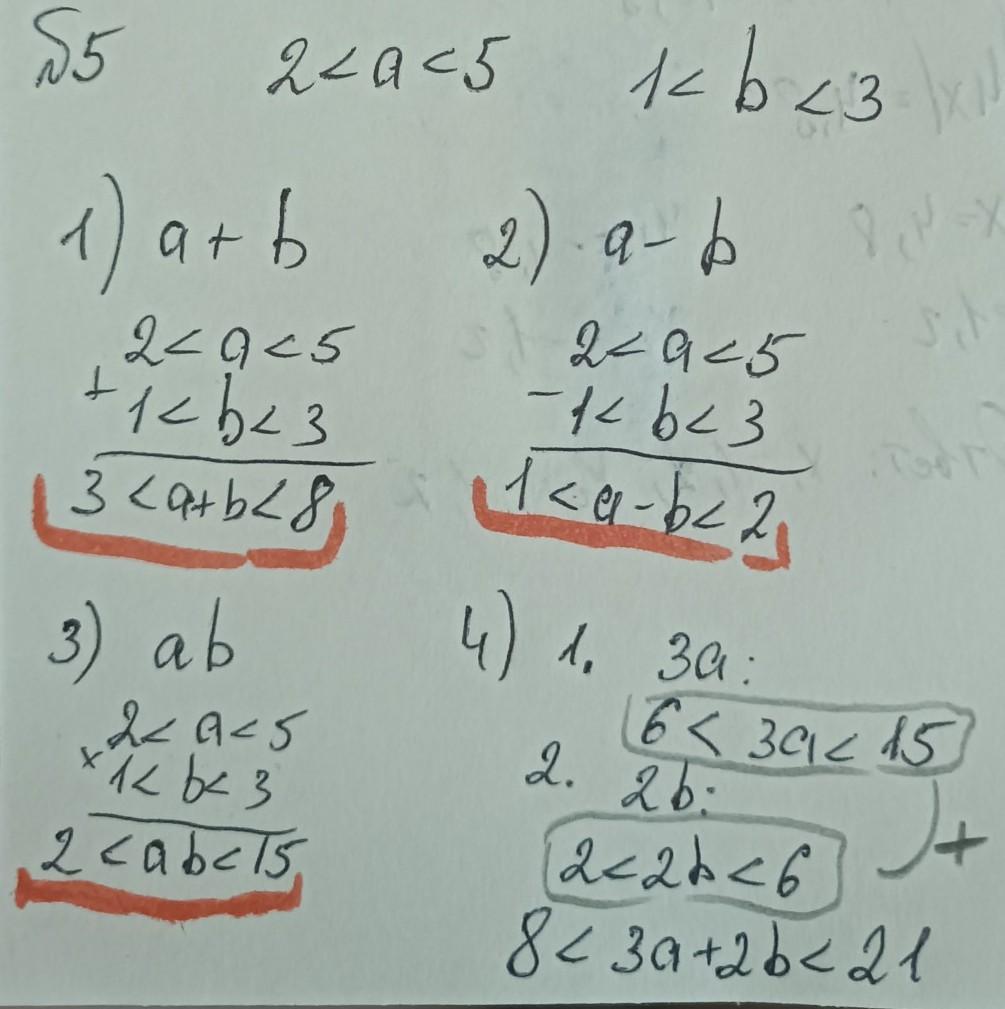 №5 2 < a < 5 1 < b < 3
1) a + b
2 < a < 5
+ 1 < b < 3
3 < a+b < 8
2) a - b
2 < a < 5
- 1 < b < 3
1 < a - b < 2
3) ab
2 < a < 5
× 1 < b < 3
2 < ab < 15
4) 1. 3a:
6 < 3a < 15
2. 2b:
2 < 2b < 6
+
8 < 3a+2b < 21